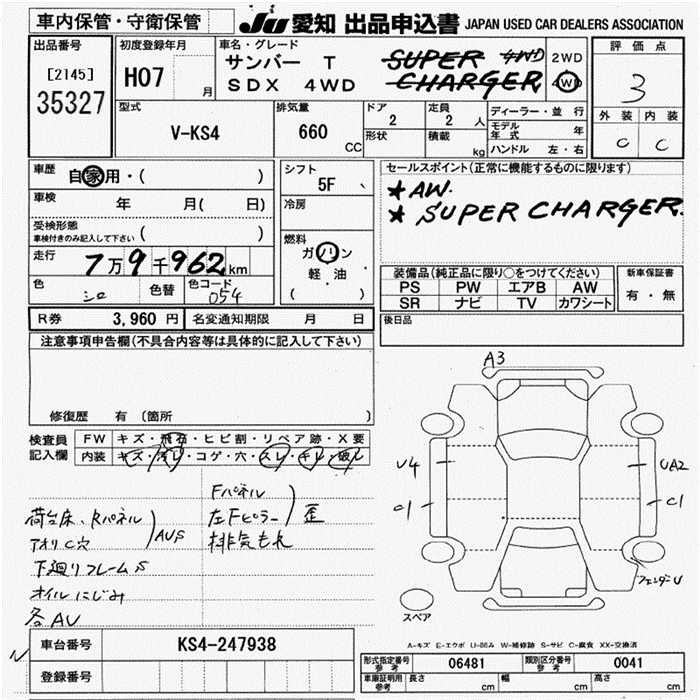 車内保管・守衛保管
JU 愛知 出品申込書 JAPAN USED CAR DEALERS ASSOCIATION
出品番号
[2145]
35327
初度登録年月
H07 月
車名・グレード
サンバー T
SDX 4WD
SUPER 4WD
CHARGER
2WD
4WD
評価点
3
外装 内装
C C
型式
V-KS4
排気量
660 CC
ドア
2
形状
定員
2 人
積載 kg
ディーラー・並行
モデル年式 年
ハンドル 左・右
車歴
自家用・( )
車検 年 月( 日)
受検形態
車検付きのみ記入して下さい ( )
走行
7万9千962km
色 シロ 色替 色コード 054
R券 3,960 円 名変通知期限 月 日
シフト
5F
冷房
燃料
ガソリン
軽油
( )
セールスポイント(正常に機能するものに限ります)
★ AW.
★ SUPER CHARGER.
装備品(純正品に限り○をつけてください)
PS PW エアB AW
SR ナビ TV カワシート
新車保証書
有・無
後日品
注意事項申告欄(不具合内容等は具体的に記入して下さい)
修復歴 有(箇所 )
検査員
記入欄
FW キズ・飛石・ヒビ割・リペア跡・X要
内装 キズ・汚れ・コゲ・穴・スレ・キレ・破れ
荷台床、Rパネル
アオリC穴
AUS
下廻りフレームS
オイルにじみ
各AU
Fパネル
左Fピラー
歪
排気もれ
A3
U4
C1
UA2
C1
フェンダーU
スペア
A-キズ E-エクボ U-凹み W-補修跡 S-サビ C-腐食 XX-交換済
車台番号 KS4-247938
登録番号
形式指定番号 参考 06481 類別区分番号 参考 0041
車庫証明用 参考 長さ cm 幅 cm 高さ cm